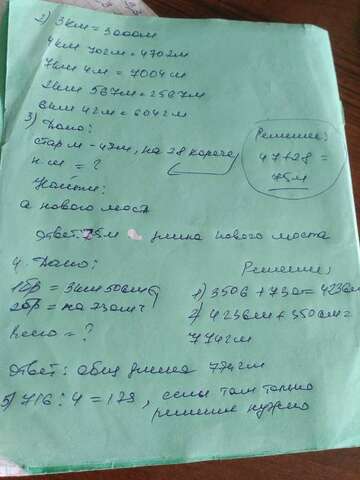 2) 3км = 3000м
4км 702м = 4702м
7км 4м = 7004м
2км 567м = 2567м
6км 42м = 6042м
3) Дано:
стар м - 47м, на 28 короче,
н.м = ?
Найти:
а нового мост
Решение:
47+28 =
75м
Ответ: 75м длина нового моста
4. Дано:
1бр = 3км 506м
2бр = на 730м
Всего = ?
Решение:
1) 3506 + 730 = 4236м
2) 4236м + 3506м =
7742м
Ответ: общ длина 7742м
5) 716 : 4 = 179, если там только
решение нужно